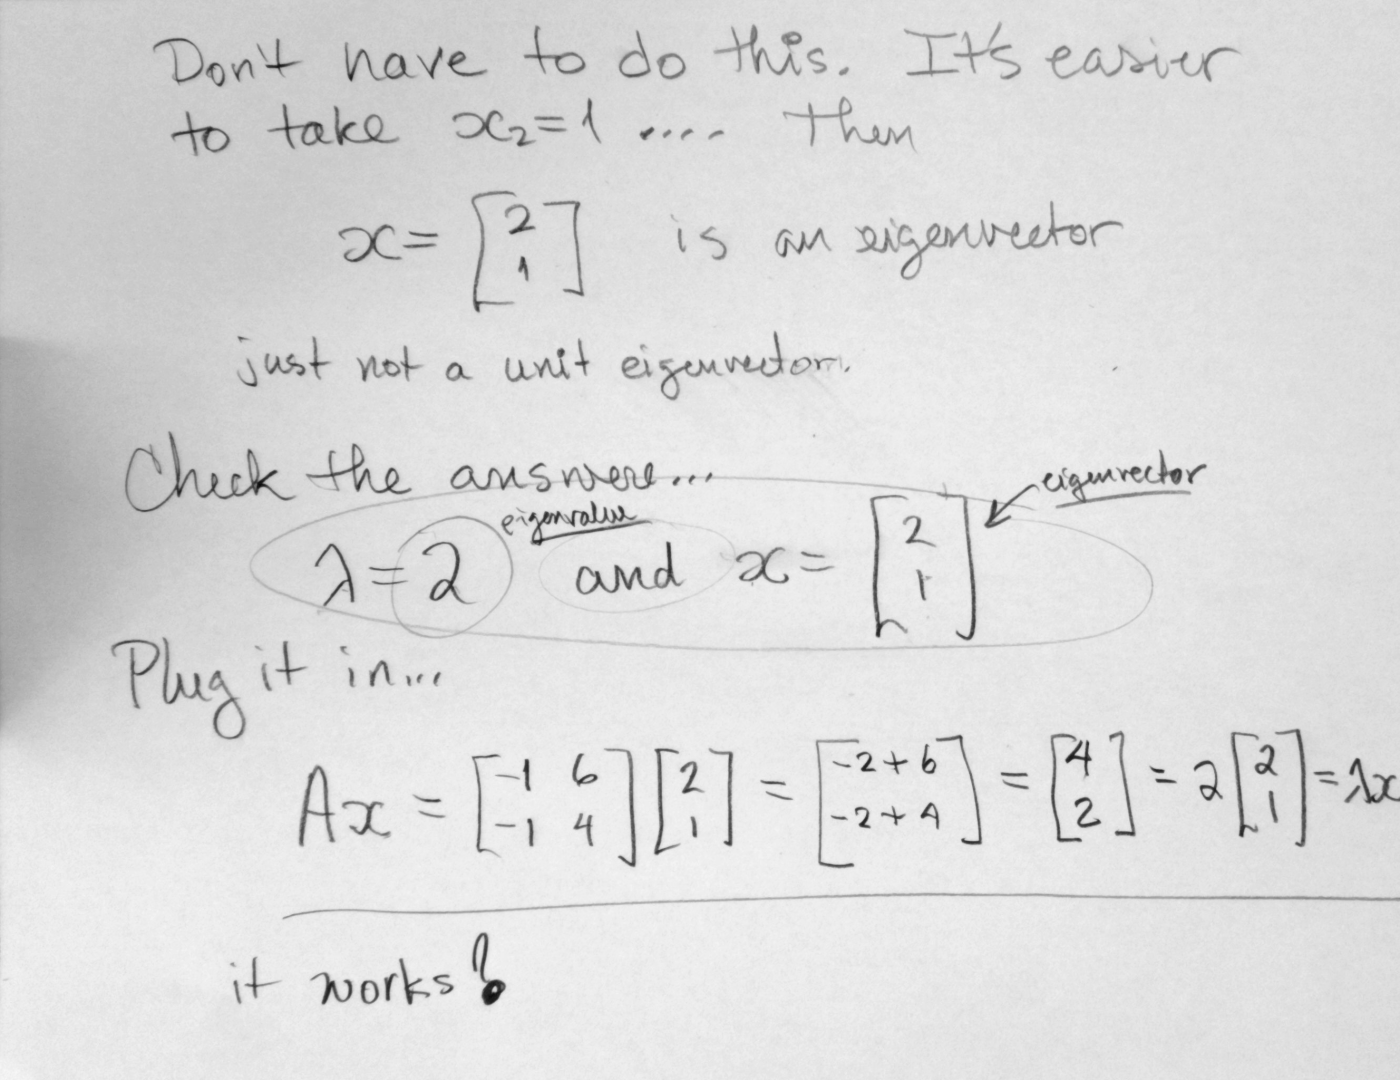 Don't have to do this. It's easier
to take x₂=1 .... Then
x = [2; 1] is an eigenvector
just not a unit eigenvector.
Check the answere...
eigenvector
eigenvalue
λ = 2 and x = [2; 1]
Plug it in...
Ax = [-1 6; -1 4] [2; 1] = [-2+6; -2+4] = [4; 2] = 2 [2; 1] = λx
it works!